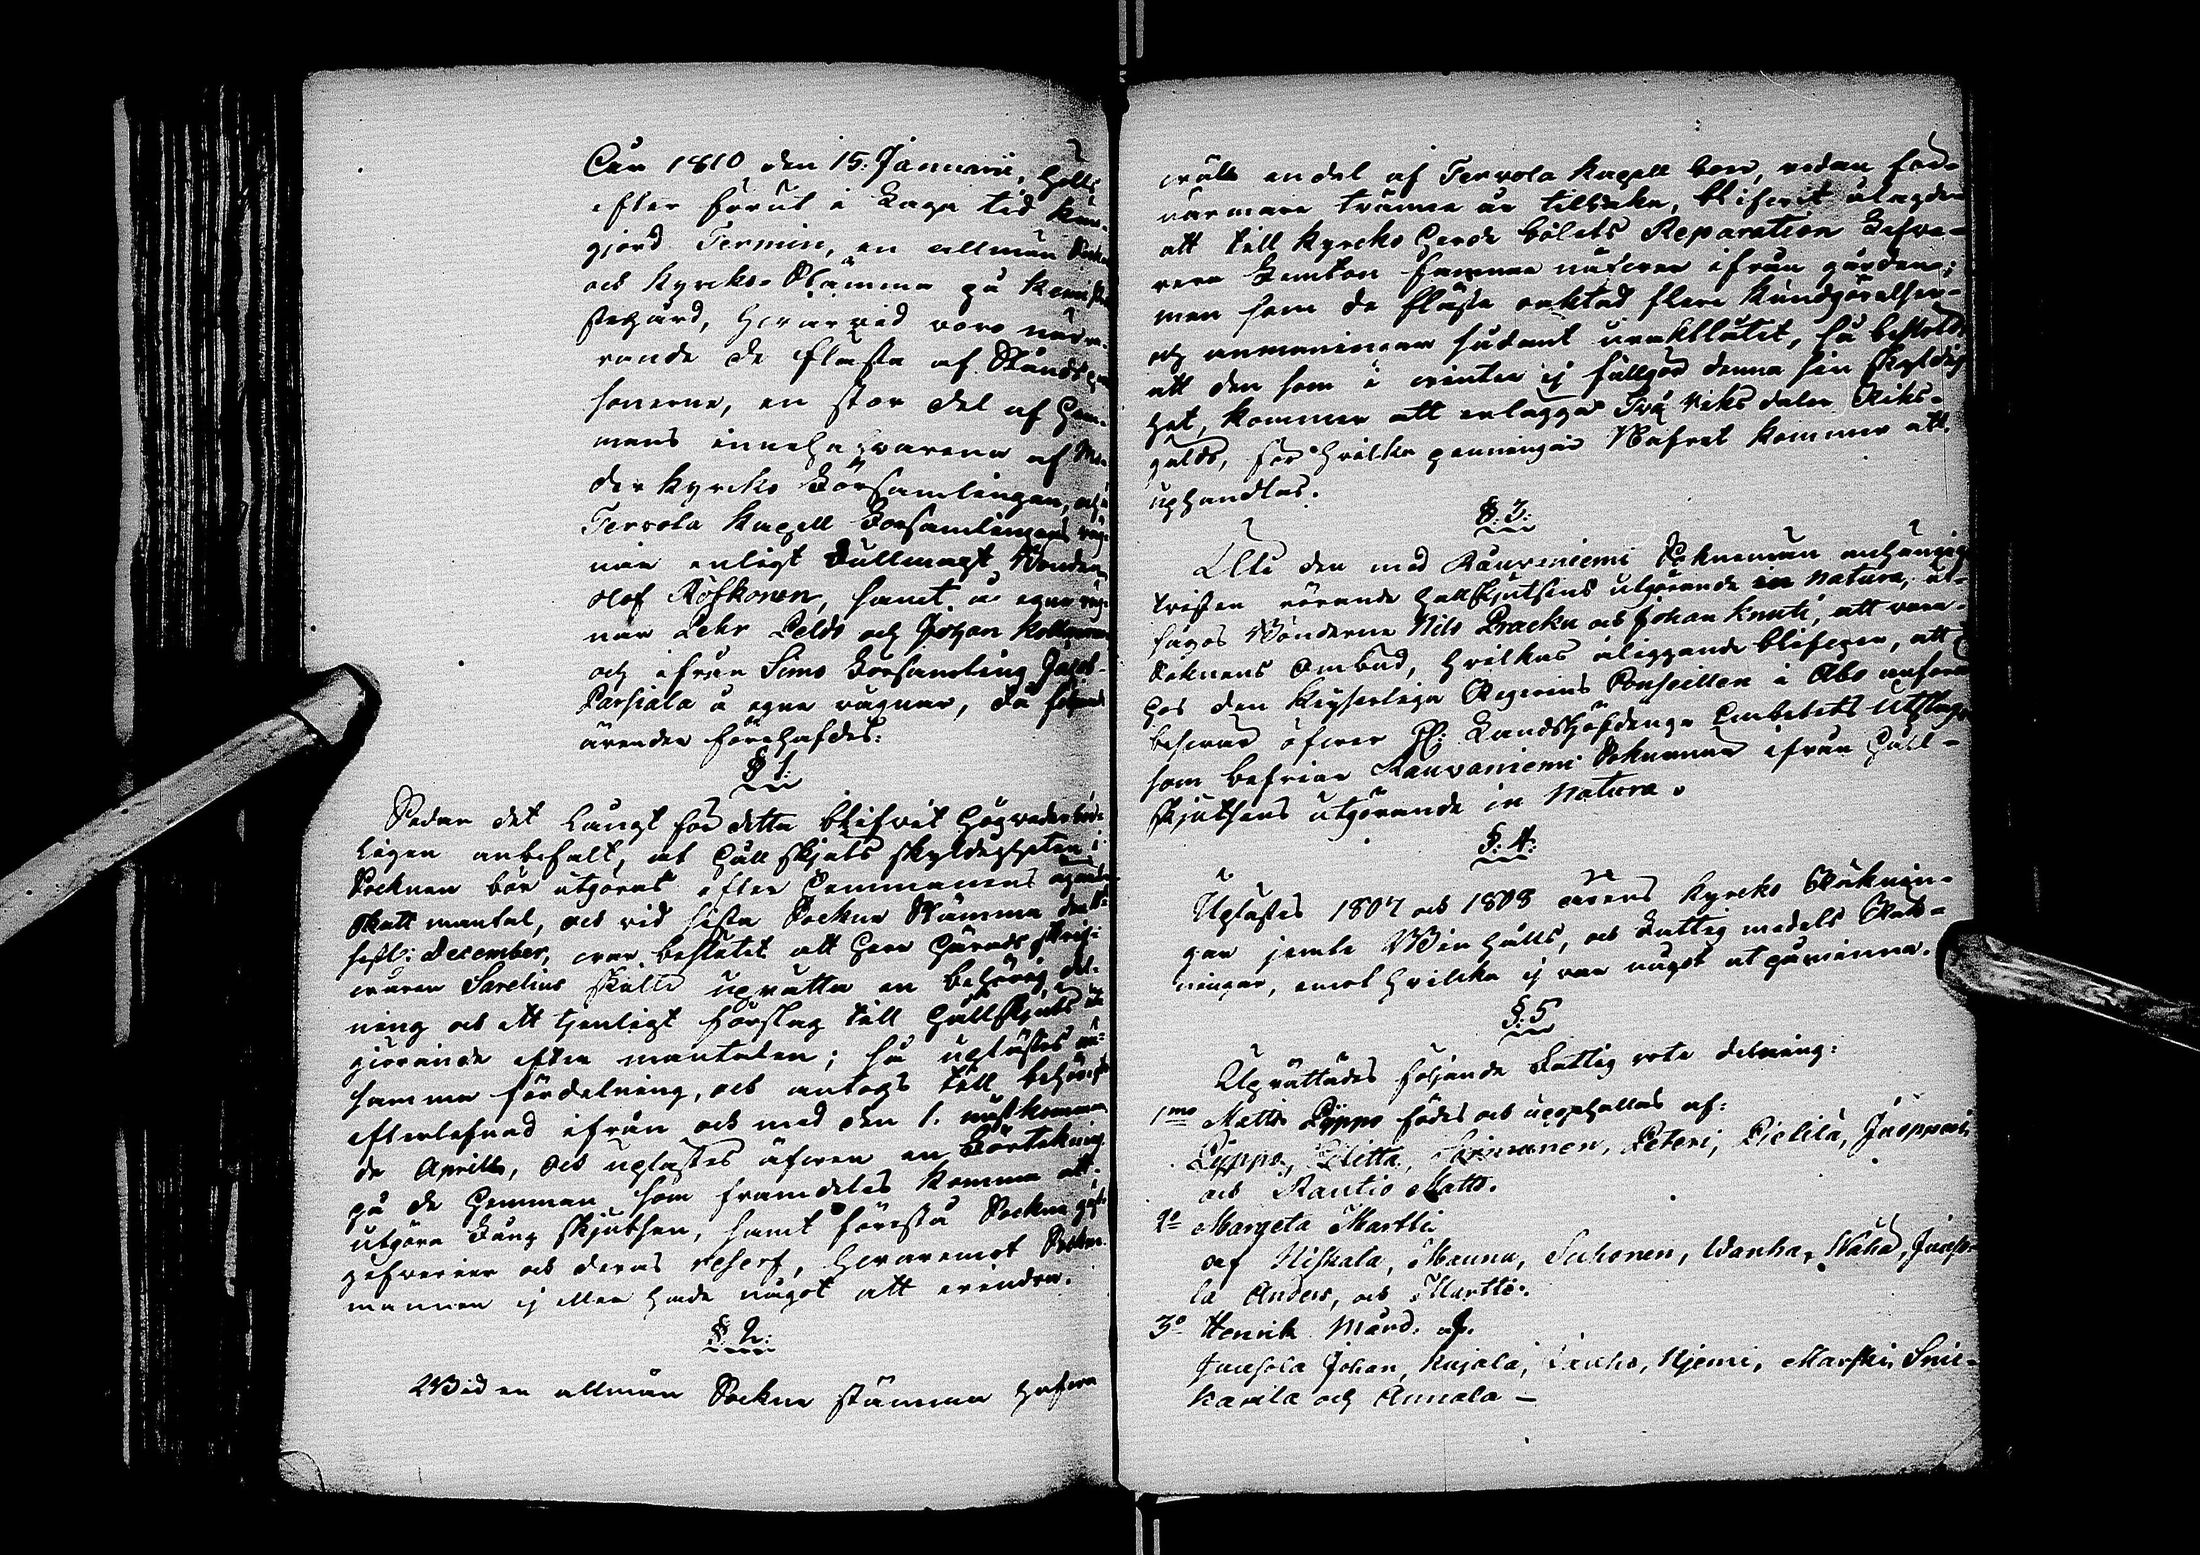 Åur 1810 den 15. Januarii, hölts
efter förut i Laga tid kun-
gjord Termin, en allmän Sockne
och Kyrcko-Stämma på Kemi Pre-
stegård, hvarvid voro närva-
rande de flästa af Stånds per-
sonerne, en stor del af Hem-
mans innehafvarena af Mo-
der kyrcko Församlingen, och å
Tervola Kapell Församlingens väg-
nar enligt Fullmagt Bonden
Olof Rößkonen, samt å egne väg-
nar Pehr Peldo och Johan
och ifrån Simo Församling Jacob
Parsiala å egna vägnar, då följande
ärenden förehafdes:
§ 1.
Sedan det längt för detta blifvit Högvederbör-
ligen anbefalt, at hållskjuts skyldigheten i
Socknen bör utgöras efter Hemmanens egande
skatt mantal, och vid sista Sockne Stämma den
sistl: December, var beslutet att Herr Härads skrif-
varen Sarelius skulle uprätta en behörig del-
ning och ett tjenligt förslag till Hållskjuts ut-
giörande efter mantalen; så uplästes nu
samma fördelning, och antogs till behörigt
efterlefnad ifrån och med den 1. nästkomman-
de Aprill, och uplästes äfven en Förtekning
på de Hemman som framdeles komma att
utgöra Fång skjutsen, samt förestå Sockne gäst-
gifverier och deras reserf, hvaremot Sockne-
mannen ej eller hade något att erindra.
§ 2.
Wid en allmän Sockne stämma hafva
väl en del af Tervola Kapell boer, redan för
närmare trenne år tillbaka, blifvit ålagde
att till Kyrcko Herde bolets Reparation Lefve-
rera Femton famnar näfver ifrån gården;
men som de fläste oaktad flere kundgörelser
och anmaningar sådant uraktlåtet, så beslöts
att den som i vinter ej fullgör denna sin skyldig-
het, kommer att erlägga Två Riks daler Riks-
gälds, för hvilka penningar Näfret kommer att
uphandlas.
§. 3.
Uti den med Rauvaniemi Sokneman anhängige
tvisten rörande Hållskjutsens utgörande in Natura, ut-
sågos Bönderne Nils Pracku och Johan Knuti, att vara
Soknens Ombud, hvilkas åliggande blifver, att
hos den Keyserliga Regerings Conseillen i Åbo anföra
besvär öfver H: Landshöfdinge Embetets Utslag
som befriar Rauvaniemi Soknenar ifrån Håll-
skjutsens utgörande in Natura.
§. 4.
Uplästes 1807 och 1808 årens Kyrcko Räknin-
gar jemte Win hålls, och Fattig medels Räk-
ningar, emot hvilka ej var något at påminna.
§. 5
Uprättades följande Fattig rote delning:
1mo Matts Pyppo födes och uppehålles af:
Pyppo, Peteri, Pielilä,
och Rautio Matts.
2o Margeta Martti
af Niskala, Mannu, Suhonen, Wanha, Nähä,
la Anders, och Martti.
3o Henrik Mård. af.
Juusola Johan, Kujala, Njemi, Marski, Snic-
karla och Annala —